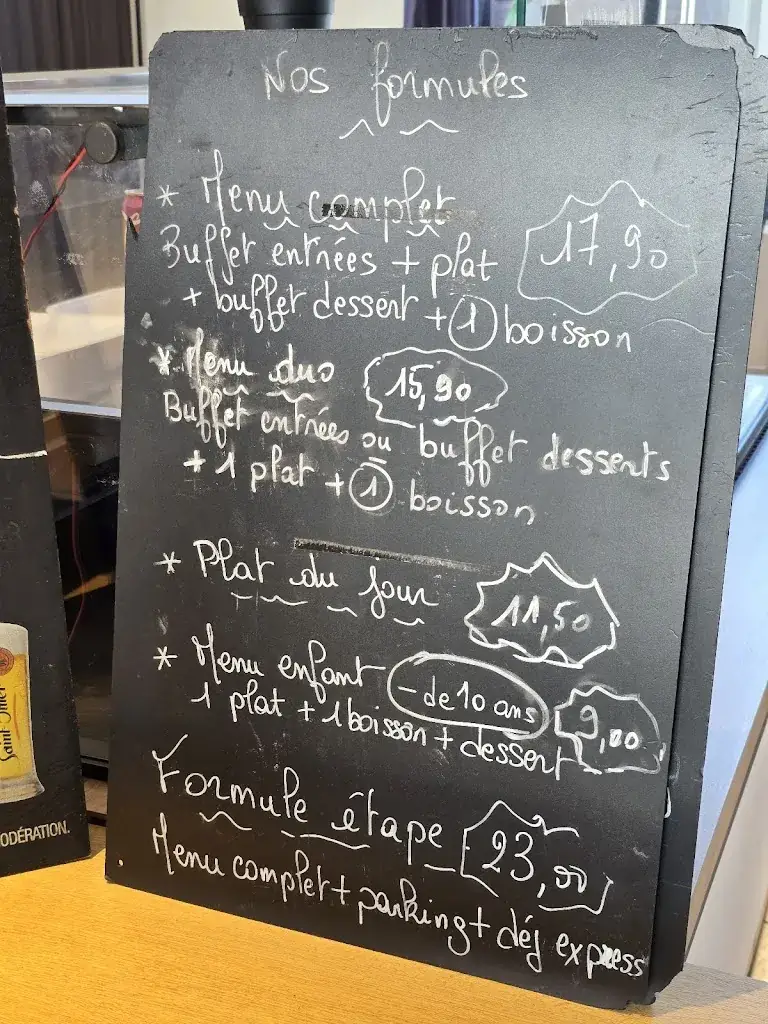 Nos formules
* Menu complet
17,90
Buffet entrées + plat
+ buffet dessert + 1 boisson
* Menu duo
15,90
Buffet entrées ou buffet desserts
+ 1 plat + 1 boisson
* Plat du jour
11,50
* Menu enfant - de 10 ans
9,00
1 plat + 1 boisson + dessert
Formule étape
23,00
Menu complet + parking + déj express
Saint Omer
ODÉRATION.